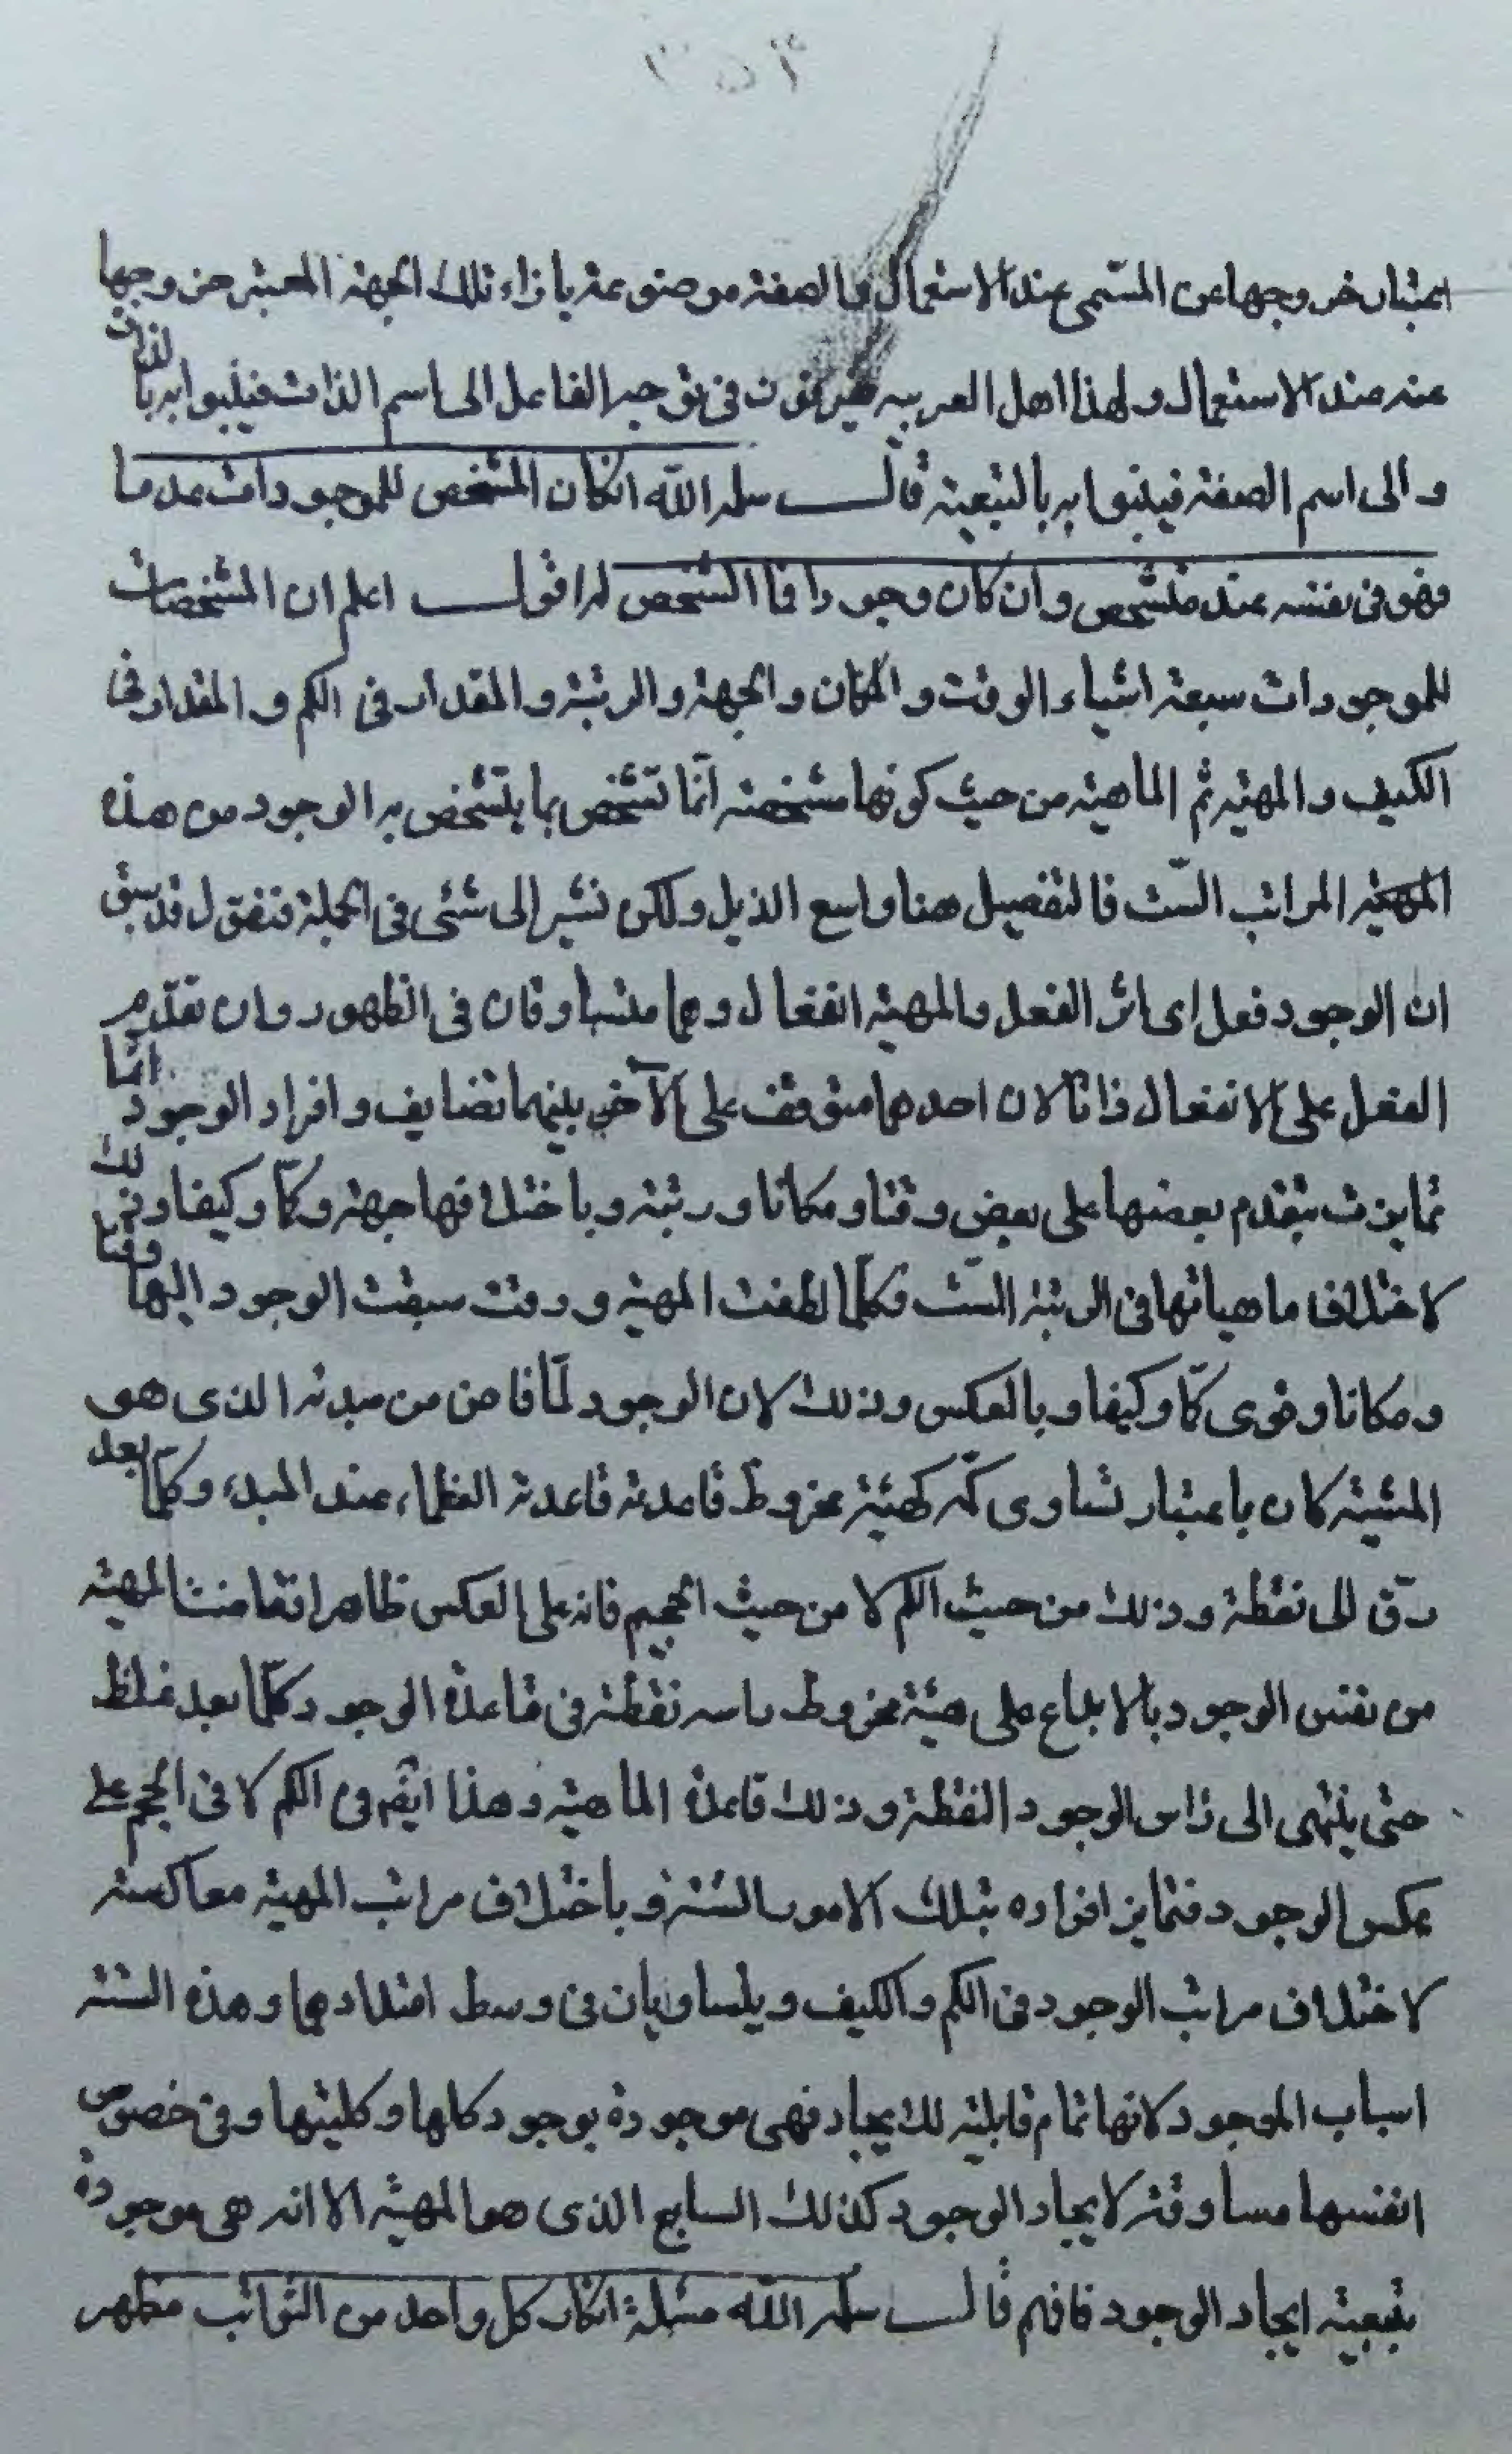 باعتبار خروجها عن المسمّى عند الاستعمال فالصفة موضوعة بازاء تلك الجهة المعتبر خروجها
عنه عند الاستعمال ولهذا اهل العربيه يفرقون فى توجيه الفاعل الى اسم الذات فيلبوا به بالذات
والى اسم الصفة فيلبوا به بالتبعية قال سلمه الله انكان المشخص للموجودات عدما
فهو فى نفسه غير متشخص وان كان وجودا فما المشخص له اقول اعلم ان المشخصات
للموجودات سبعة اشياء الوقت والمكان والجهة والرتبة والمقدار فى الكم والمقدار فى
الكيف والمهية ثم الماهية من حيث كونها مشخصة انّما تتشخص بما يتشخص به الوجود من هذه
المراتب الستّ فالتفصيل هنا واسع الذيل ولكن نشير الى شئى فى الجملة فنقول قد سبق
ان الوجود فعل اى اثر الفعل والمهية انفعال وهما متساوقان فى الظهور وان تقدّم
الفعل على الانفعال ذاتا لان احدهما متوقف على الآخر بينهما تضايف وافراد الوجود انّما
تمايزت بتقدم بعضها على بعض وقتا ومكانا ورتبة وباختلافها جهة وكمّا وكيفا وذلك
لاختلاف ماهياتها فى الرتبة الستّ فكلّما لطفت المهية ورقت سبقت الوجود اليها وقتا
ومكانا وقوى كمّا وكيفا وبالعكس وذلك لان الوجود لمّا فاض من مبدئه الذى هو
المشية كان باعتبار تساوى كمّه كهيئة مخروط قاعدته قاعدته العظماء عند المبدء وكلّما بعد
دقّ الى نقطة وذلك من حيث الكم لا من حيث الحجيم فانه على العكس ظاهرا فقامت المهية
من نفس الوجود بالابداع على هيئة مخروط راسه نقطة فى قاعدة الوجود كلّما بعد غلظ
حتى ينتهى الى راس الوجود النقطة وذلك قاعدة الماهية وهذا ايضم فى الكم لا فى الحجم على
عكس الوجود فتمايز افراده بتلك الامور الستة وباختلاف مراتب المهية معاكسة
لاختلاف مراتب الوجود فى الكم والكيف ويتساويان فى وسط امتدادهما وهذه الستة
اسباب الموجود لانها تمام قابلية للايجاد فهى موجودة بوجود كلها وكليتها وفى خصوص
انفسها مساوقة لايجاد الوجود كذلك السابع الذى هو المهية الا انه هى موجودة
بتبعية ايجاد الوجود فافهم قال سلمه الله مسئلة انكان كل واحد من التوائب مظهر